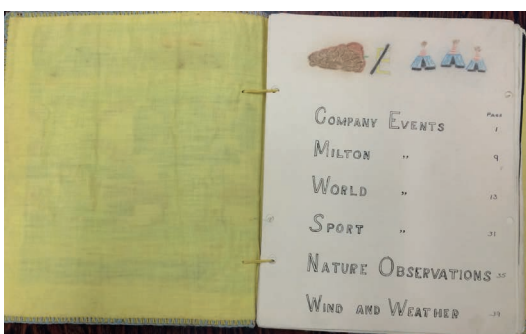 PAGE
COMPANY EVENTS 1
MILTON " 9
WORLD " 13
SPORT " 31
NATURE OBSERVATIONS 35
WIND AND WEATHER 39